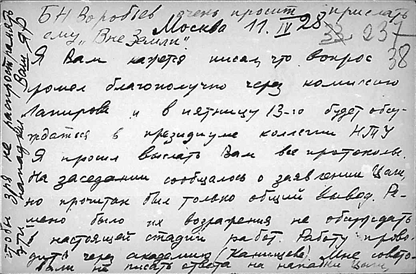 БН Воробьев очень просит прислать
ему „Вне Земли"
Москва 11.IV 28
33 237
38
Я Вам кажется писал, что вопрос
прошел благополучно через комиссию
Лапирова и в пятницу 13-го будет обсу-
ждаться в президиуме коллегии НТУ
Я просил выслать Вам все протоколы.
На заседании сообщалось о заявлении Цан
но прочитан был только общий вывод. Ре-
шено было их возражения не обсуждать
в настоящей стадии работ. Работу прово-
дить через академика Мне совето-
вали не писать ответа на нападки Цан
чтобы зря не
Ваш ЯР